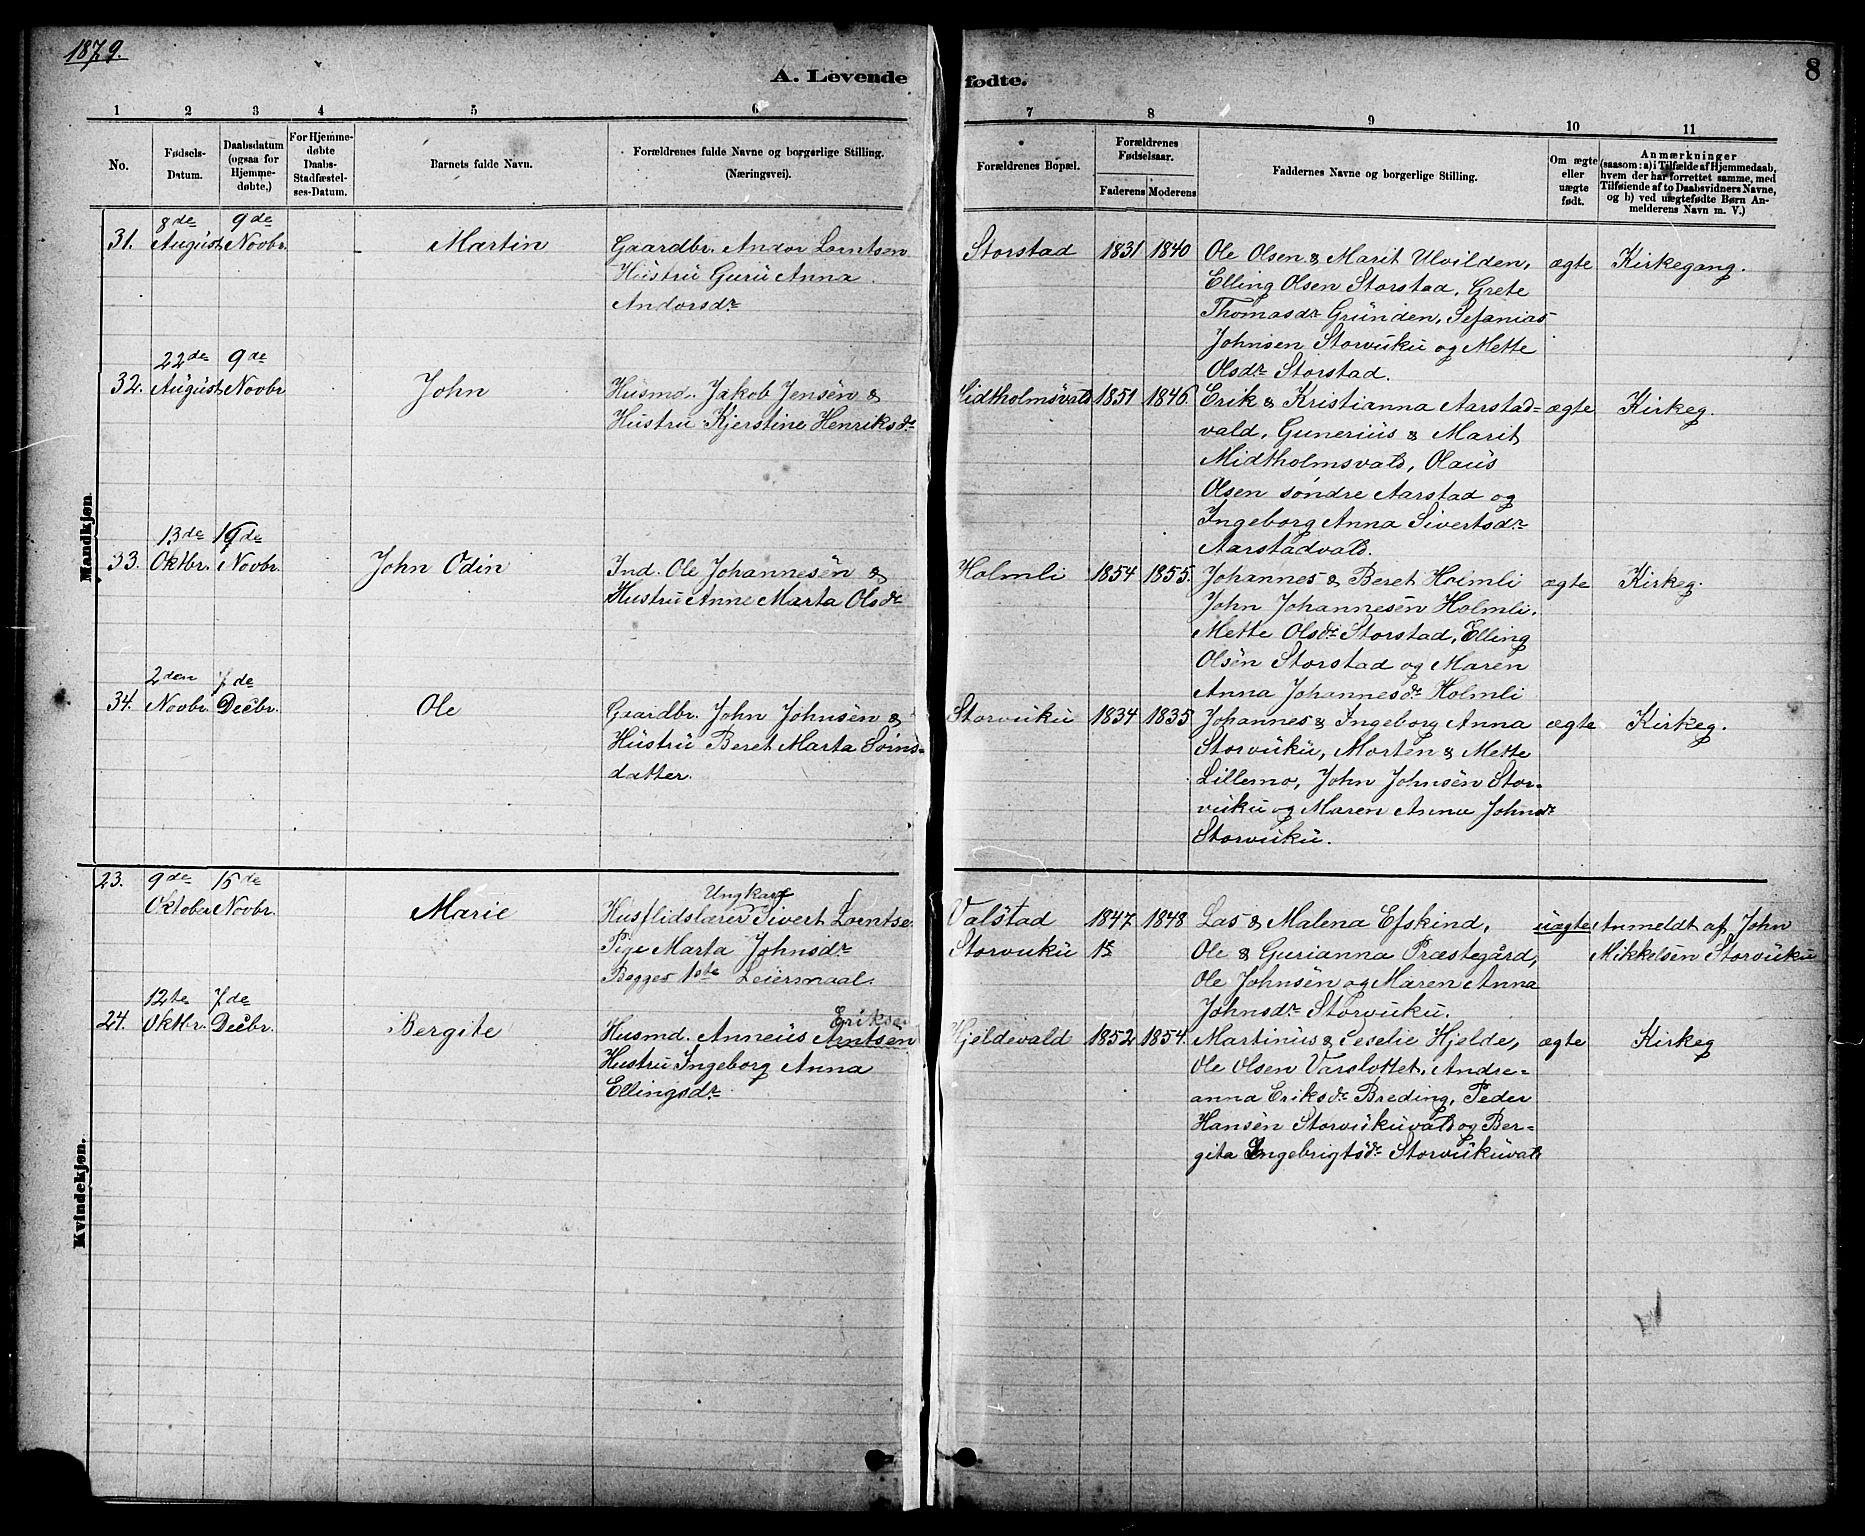 1879.
8
A. Levende fødte.
1 2 3 4 5 6 7 8 9 10 11
No.
Fødsels-
Datum.
Daabsdatum
(ogsaa for
Hjemme-
døbte,)
For Hjemme-
døbte
Daabs-
Stadfæstel-
ses-Datum.
Barnets fulde Navn.
Forældrenes fulde Navne og borgerlige Stilling.
(Næringsvei).
Forældrenes Bopæl.
Forældrenes
Fødselsaar.
Faderens Moderens
Faddernes Navne og borgerlige Stilling.
Om ægte
eller
uægte
født.
Anmærkninger
(saasom: a) i Tilfælde af Hjemmedaab,
hvem der har forrettet samme, med
Tilføiende af to Daabsvidners Navne,
og b) ved uægtefødte Børn An-
melderens Navn m. V.)
Mandkjøn
31.
8de
August
9de
Novbr.
Martin
Gaardbr. Andor Lorntsen
Hustru Guru Anna
Andorsdr
Storstad
1831 1840
Ole Olsen & Marit Ulvilden,
Elling Olsen Storstad, Grete
Thomasdr Gründen, Sefanias
Johnsen Storvuku og Mette
Olsdr Storstad.
ægte
Kirkegang.
32.
22de
August
9de
Novbr
John
Husmd. Jakob Jensen &
Hustru Kjerstine Henriksdr
Midtholmsvald
1851 1846.
Erik & Kristianna Aarstad=
vald, Gunerius & Marit
Midtholmsvald, Olaus
Olsen søndre Aarstad og
Ingeborg Anna Sivertsdr
Aarstadvald.
ægte
Kirkeg.
33.
13de
Oktbr.
19de
Novbr.
John Odin
Ind. Ole Johannesen &
Hustru Anne Marta Olsdr
Holmli
1854 1855.
Johannes & Beret Holmli
John Johannesen Holmli.
Mette Olsdr Storstad, Elling
Olsen Storstad og Maren
Anna Johannesdr Holmli
ægte
Kirkeg.
34.
2den
Novbr.
7de
Decbr.
Ole
Gaardbr. John Johnsen &
Hustru Beret Marta Svins-
datter.
Storvuku
1834 1835
Johannes & Ingeborg Anna
Storvuku, Morten & Mette
Lillemo, John Johnsen Stor-
vuku og Maren Anna Johnsdr
Storvuku.
ægte
Kirkeg.
Kvindekjøn.
23.
9de
Oktober
15de
Novbr.
Marie
Ungkarl
Husflidslærer Sivert Lorntse
Pige Marta Johnsdr
Begges 1ste Leiersmaal.
Valstad
Storvuku
1847 1848
Las & Malena Efskind,
Ole & Gurianna Præstegård,
Ole Johnsen og Maren Anna
Johnsdr Storvuku.
uægte
Anmeldt af John
Mikkelsen Storvuku
24.
12te
Oktbr.
7de
Decbr.
Bergite
Erikse
Husmd. Anneus Arntsen
Hustru Ingeborg Anna
Ellingsdr
Hjeldevald
1852 1854.
Martinus & Ceselie Hjelde,
Ole Olsen Varslottet, Andre=
anna Eriksdr Breding, Peder
Hansen Storvukuvald og Ber-
gita Ingebrigtsdr Storvukuval
ægte
Kirkeg